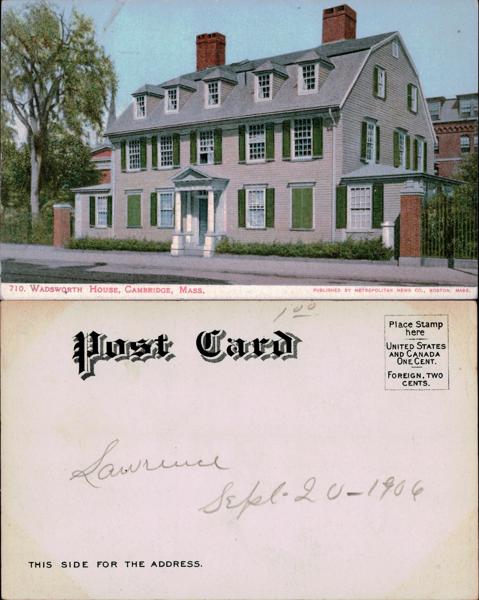 710. Wadsworth House, Cambridge, Mass.
Published by Metropolitan News Co., Boston, Mass.
1.00
Post Card
Place Stamp
here
United States
and Canada
One Cent.
Foreign, Two
Cents.
Lawrence
Sept. 20-1906
THIS SIDE FOR THE ADDRESS.